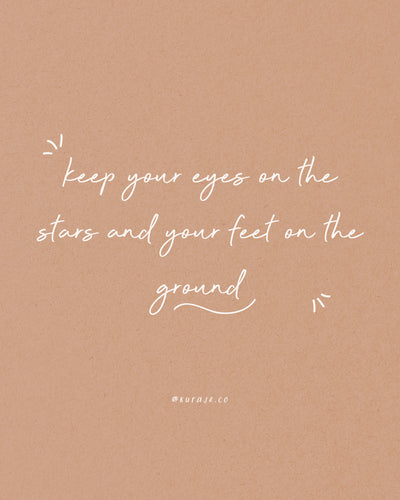 keep your eyes on the
stars and your feet on the
ground
@kuraje.co